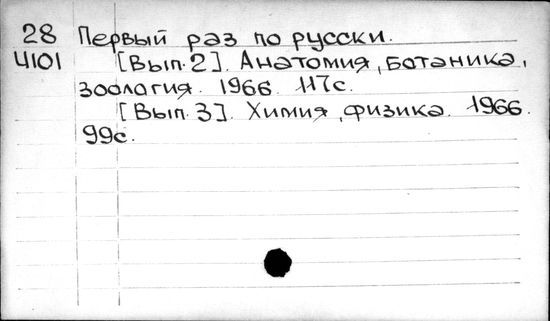 28 Первый раз по русски.
Ч101 [Вып.2]. Анатомия, ботаника,
зоология. 1966. 117с.
[Вып.3]. Химия, физика. 1966.
99с.